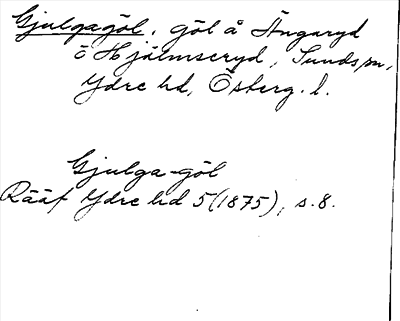 Gjulgagöl, göl å Ängaryd
o Hjälmseryd, Sunds sn,
Ydre hd, Österg. l.
Gjulga-göl
Rääf Ydre hd 5 (1875), s. 8.